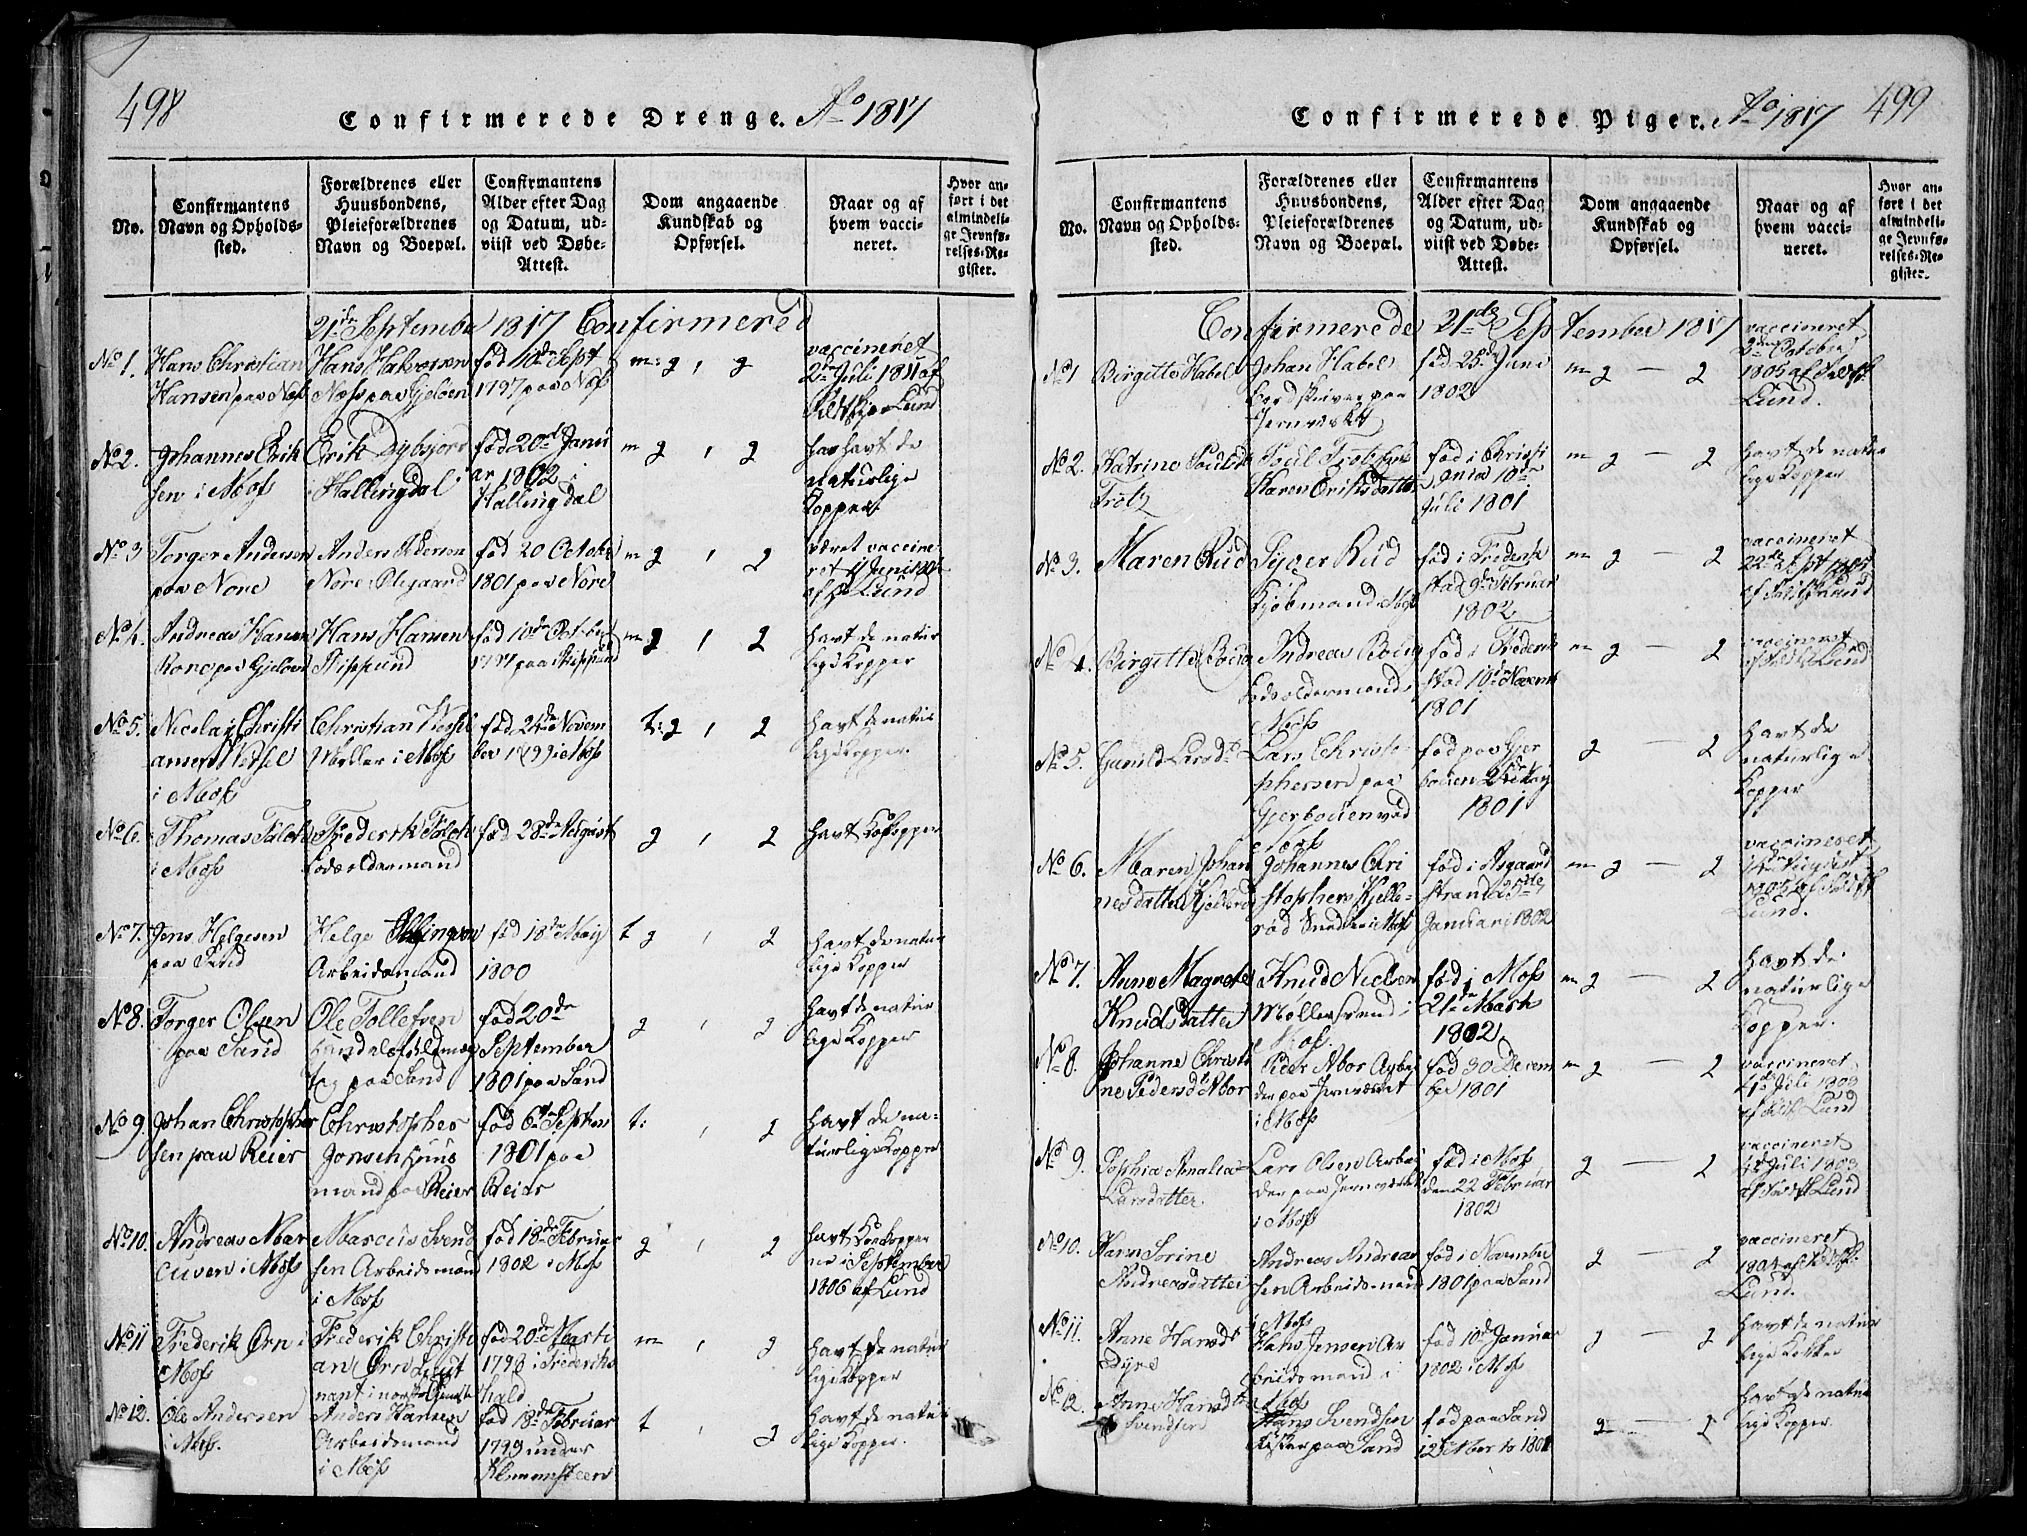 498
Confirmerede Drenge. Ao 1817
No.
Confirmantens
Navn og Opholds-
sted.
Forældrenes eller
Huusbondens,
Pleieforældrenes
Navn og Boepæl.
Confirmantens
Alder efter Dag
og Datum, ud-
viist ved Døbe-
Attest.
Dom angaaende
Kundskab og
Opførsel.
Naar og af
hvem vacci-
neret.
Hvor an-
ført i det
almindeli-
ge Jevnfø-
relses-Re-
gister.
21de September 1817 Confirmered
No 1.
Hans Christian
Hansen paa Næs
Hans Halvorsen
Næss paa Gjeloen
fød 10de Sept
1797 paa Næs
m: g , g
vaccineret
2den Juli 1811 af
Lund
No 2.
Johannes Erik
sen i Mos
Erik Dybsjord
i Hallingdal
fød 20de Janu
ar 1802 i
Hallingdal
m g , g
har havt de
naturlige
Kopper
No 3
Torger Andersen
paa Nore
Anders
Nore
fød 20 Octobr
1801 paa Nore
m g , g
været vaccine
ret
Lund
No 4.
Andreas Hansen
paa Gjeloen
Hans Hansen
Skippund
fød 10de Octobr
1797 paa Skippund
m g , g
havt de natur
lige Kopper
No 5.
Nicolay Christi
ansen Wessel
i Mos
Christian Wessel
Møller i Mos
fød 24de Novem
ber 1799 i Mos
t: g , g
havt de natur
lige Kopper.
No 6.
Thomas Falck
i Mos
Frederik Falck
fød 28de August
g , g
havt Kokopper
No 7.
Jens Helgesen
paa Sand
Helge
Arbeidsmand
fød 18de May
1800
t g , g
havt de natur
lige Kopper
No 8.
Torger Olsen
paa Sand
Ole Tollefsen
paa Sand
fød 20de
September
1801 paa Sand
g , g
havt de natur
lige Kopper
No 9
Johan Christopher
sen paa Reier
Christopher
Jonsen Huus
mand paa Reier
fød 6te Septem
1801 paa
Reier
t: , g
havt de na-
turlige Kopper
No 10.
Andreas Mar
cusen i Mos
Marcus Svend
sen Arbeidsmand
i Mos
fød 18de Februar
1802 i Mos
g , g
havt Kokopper
ne i September
1806 af Lund
No 11
Frederik Ørn i
Mos
Frederik Christi
an Ørn Lieut
nant
fød 20de Marts
1798 i Frederiks
hald
m , g
havt de natur
lige Kopper
No 12.
Ole Andersen
i Mos.
Anders Hansen
Arbeidsmand
i Mos
fød 18de Februar
1799 under
t , g
havt de natur
lige Kopper.
499
Confirmerede Piger. Ao 1817
No.
Confirmantens
Navn og Opholds-
sted.
Forældrenes eller
Huusbondens,
Pleieforældrenes
Navn og Boepæl.
Confirmantens
Alder efter Dag
og Datum, ud-
viist ved Døbe-
Attest.
Dom angaaende
Kundskab og
Opførsel.
Naar og af
hvem vacci-
neret.
Hvor an-
ført i det
almindeli-
ge Jevnfø-
relses-Re-
gister.
Confirmerede 21de September 1817
No 1
Birgitte Habel
Johan Habel
Jordskriver paa
Jernverket
fød 25de Juni
1802
m g — g
vaccineret
3den October
1805 af
Lund.
No 2.
Katrine Poulsd
Trolz
Poul Trolz
Karen Eriksdatter
fød i Christi
ania 10de
Juli 1801
m g — g
havt de natur
lige Kopper
No 3.
Maren Rud
Syver Rud
Kjøbmand i Mos
fød i Fredrik
stad 9de Februar
1802
m g — g
vaccineret
22de Sept 1805
af Lund
No 4.
Birgitte
Andreas
Mos
fød i Frederik
stad 10de Novem
1801
m g — g
vaccineret
af Lund
No 5.
Gunild Larsdt
Lars Christo-
phersen paa
fød paa
1801
g — g
havt de
naturlige
Kopper
No 6.
Maren Johan
nesdatter Kjellerød
Johannes Chri
stophers Kjelle-
rød Snedker i Mos
fød i Asgaard
strand 25de
Januari 1802
m g — g
vaccineret
August
1805 af
Lund.
No 7.
Anne Magrete
Knudsdatter
Knud Nielsen
Møllersvend i
Mos
fød i Mos
21de Marts
1802
m g — g
havt de
naturlige
Kopper.
No 8.
Johanne Christi
ne Pedersd Moor
Peder Moor Arbei
der paa Jernværket
i Mos
fød 30 Decem
ber 1801
m g — g
vaccineret
Juli 1803
af Lund
No 9.
Sophia Amalia
Larsdatter
Lars Olsen Arbei
der paa Jernværket
i Mos
fød i Mos
den 22 Februar
1802
g — g
vaccineret
Juli 1803
af Lund
No 10.
Karen Sorine
Andreasdatter
Andreas Andrea
sen Arbeidsmand
i Mos
fød i November
1801 paa Sand
g — g
vaccineret
1804 af
Lund.
No 11.
Anne Hansdt
Dyre
Hans Jensen Ar
beidsmand i
Mos
fød 10de Januar
1802 i Mos
g — g
havt de natur
lige Kokker
No 12.
Anne Hansdt
Svendsen
Hans Svendsen
Fisker paa Sand
fød paa Sand
12 Marts 1801
g — g
havt de natur
lige Kopper.